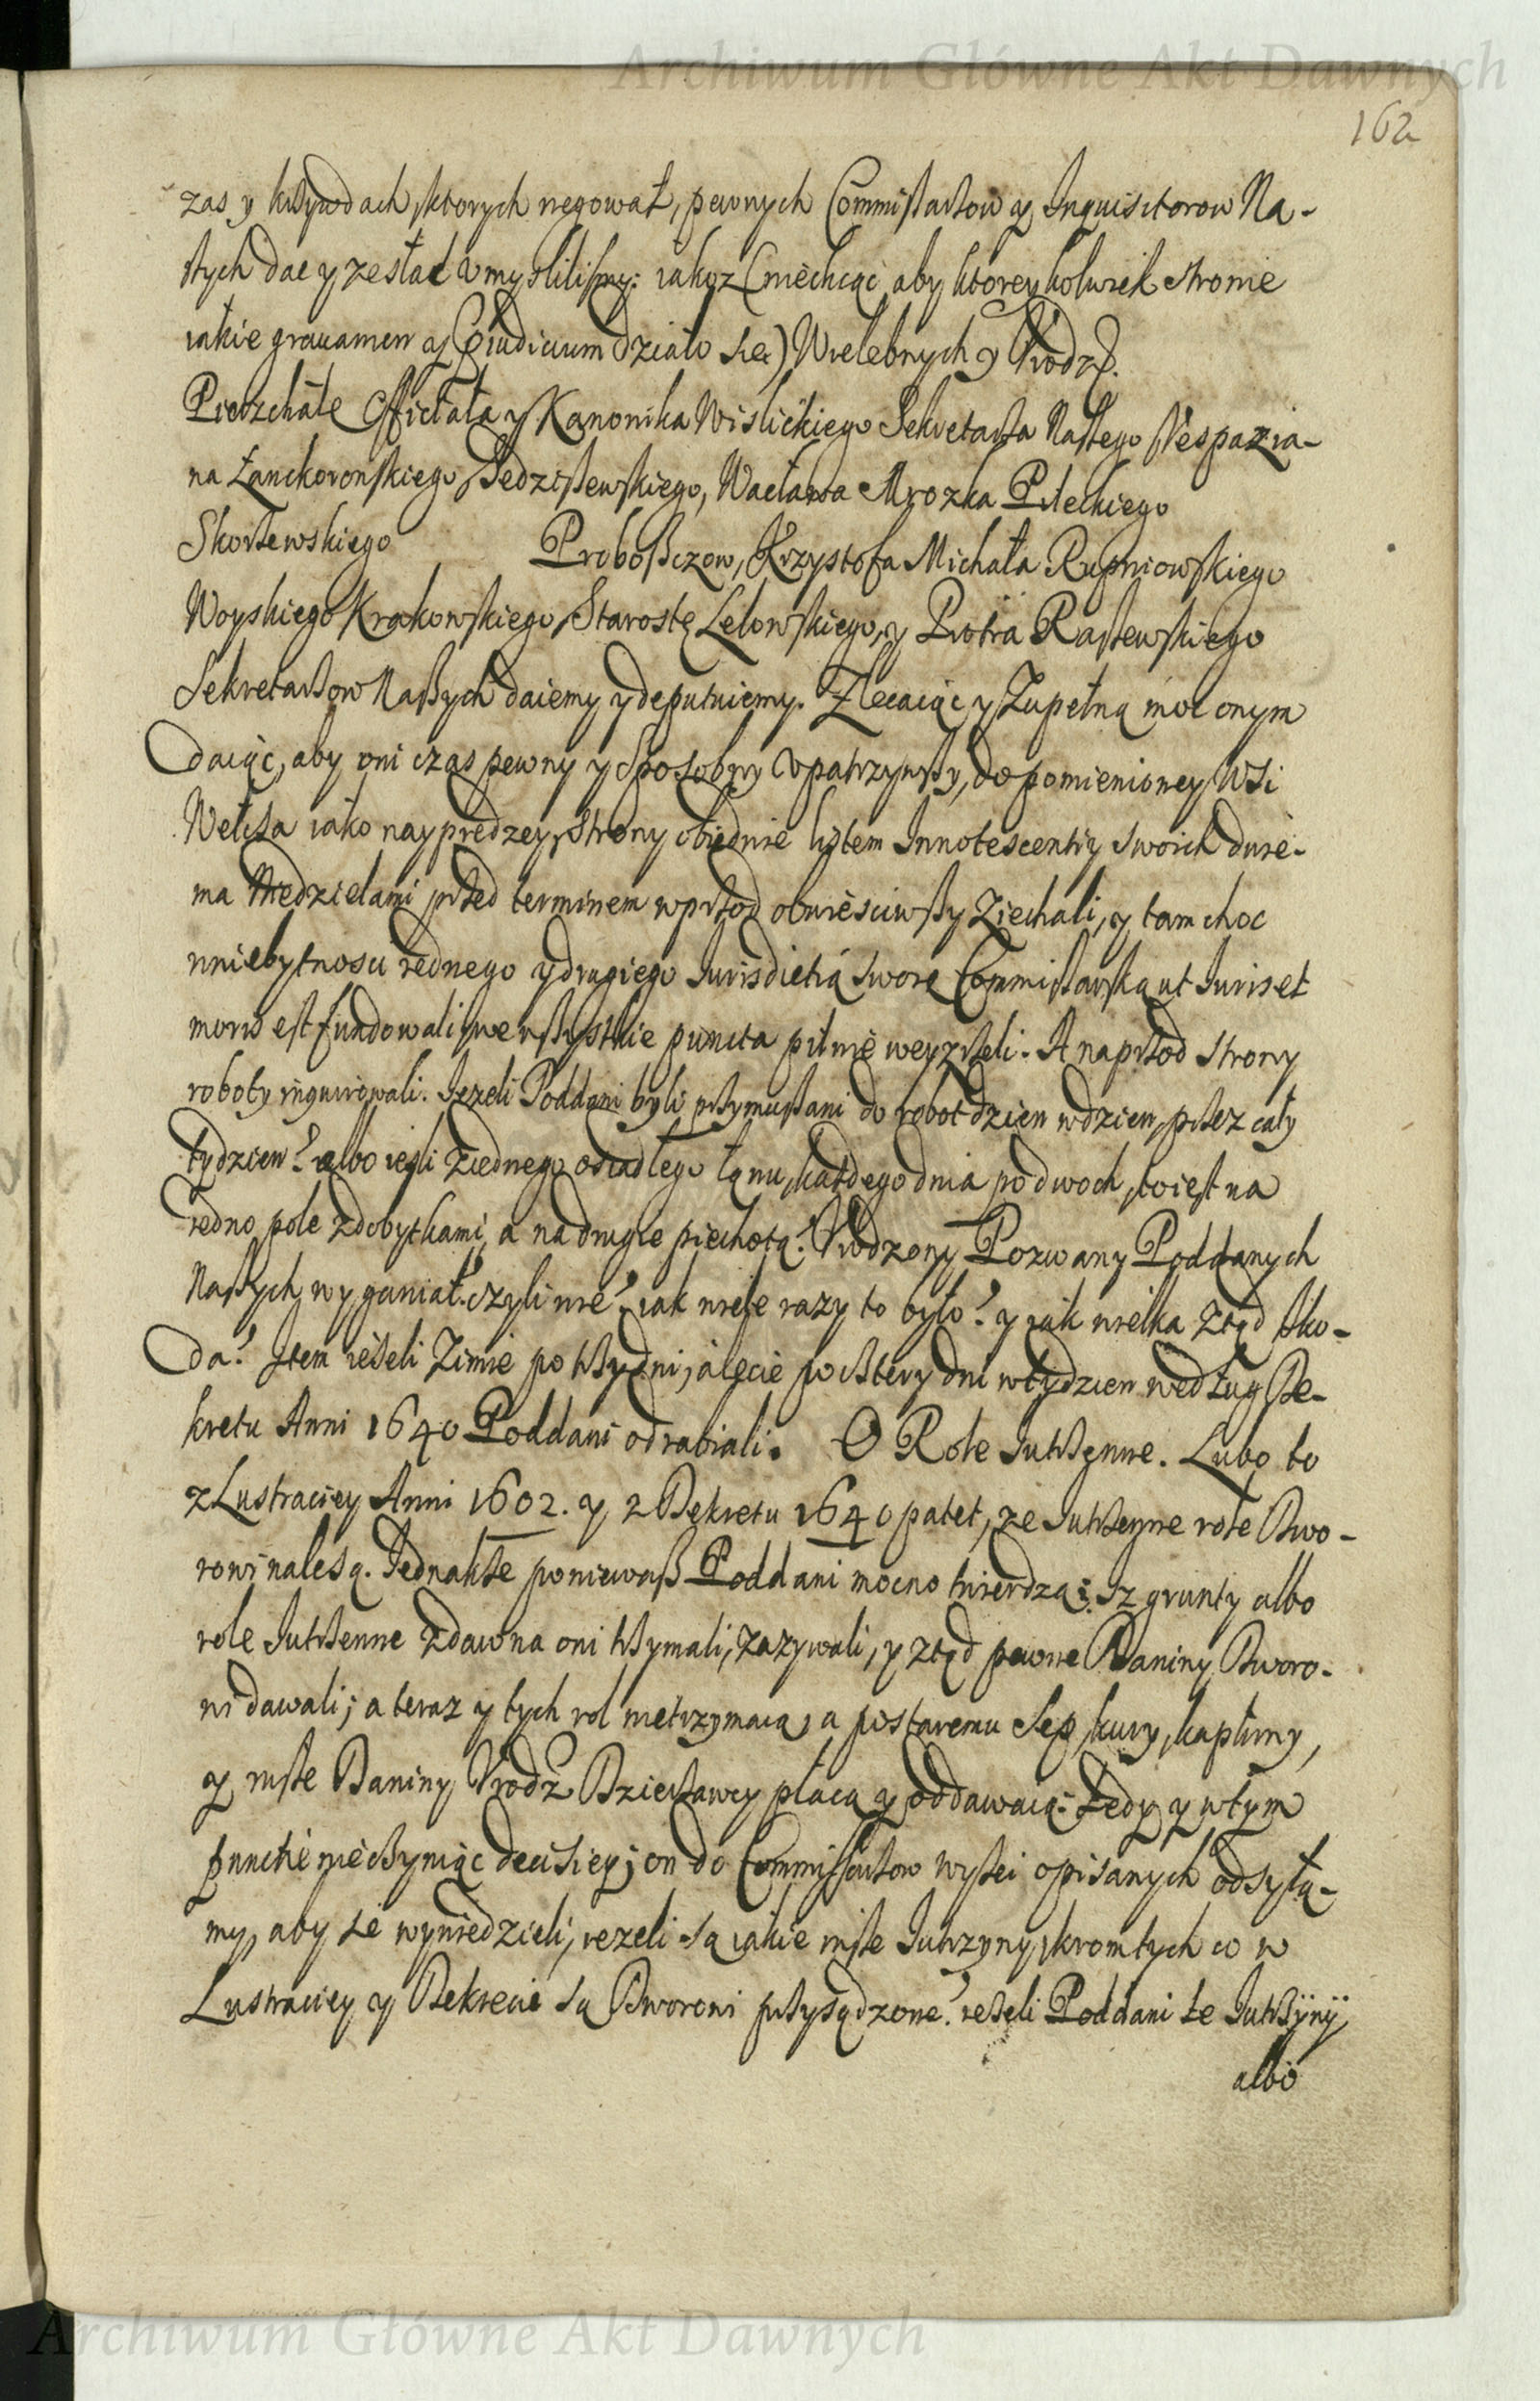 Archiwum Główne Akt Dawnych
162
zas y krzywdach, ktorych negował, pewnych Commissarzow y Inquisitorow Na-
szych dac y zesłac vmyslilismy: iakoz (niechcąc aby ktoreykolwiek stronie
iakie grauamen y praeiudicium działo się) Wielebnych y Vrodz.
Pierzchałę Officiała y Kanonika Wislickiego Sekretarza Naszego Vespazia-
na Łanckoronskiego Sędziszewskiego, Wacława Mrozka Pileckiego
Skorzewskiego Proboszczow, Krzysztofa Michała Rupniowskiego
Woyskiego Krakowskiego, Starostę Lelowskiego, y Piotra Raszewskiego
Sekretarzow Naszych daiemy y deputuiemy. Zlecaiąc y Zupełną moc onym
daiąc, aby oni czas pewny y sposobny vpatrzywszy, do pomienioney Wsi
Wełcza iako nayprędzey, strony obiedwie listem Innotescentiy swoich dwie-
ma Niedzielami przed terminem wprzod obwiesciwszy Ziechali, y tam choc
wniebytnosci iednego y drugiego Iurisdictią swoię Commissarską ut Iuris et
moris est fundowali, we wszystkie puncta pilnie weyrzeli. A naprzod strony
roboty inquirowali. Iezeli Poddani byli przymuszani do robot dzien wdzien, przez cały
tydzien? albo iesli ziednego osiadłego łanu, kazdego dnia po dwoch, to iest na
iedno pole zdobytkami, a na drugie piechotą? Vrodzony Pozwany Poddanych
Naszych wyganiał? czyli nie? iak wiele razy to było? y iak wielka ztąd szko-
da? Item ieżeli Zimie po trzy dni, a lecie po cztery dni wtydzien według De-
kretu Anni 1640 Poddani odrabiali. O Role Iutrzenne. Lubo to
z Lustraciey Anni 1602. y z Dekretu 1640 patet, ze Iutrzenne role Dwo-
rowi należą. Iednakże poniewasz Poddani mocno twierdzą: Iz grunty albo
role Iutrzenne zdawna oni trzymali, zazywali, y ztąd pewne Daniny Dworo-
wi dawali; a teraz y tych rol nietrzymaią, a postaremu Sep, kury, kapłuny,
y insze Daniny Vrodz. Dzierżawcy płacą y oddawaią: tedy y wtym
punctie nieczyniąc decisiey; on do Commissarzow wyszei opisanych odsyła-
my, aby się wywiedzieli, iezeli są iakie insze Iutrzyny, kromtych co w
Lustraciey y Dekrecie są Dworowi przysądzone? ieżeli Poddani te Iutrzyny,
albo
Archiwum Główne Akt Dawnych